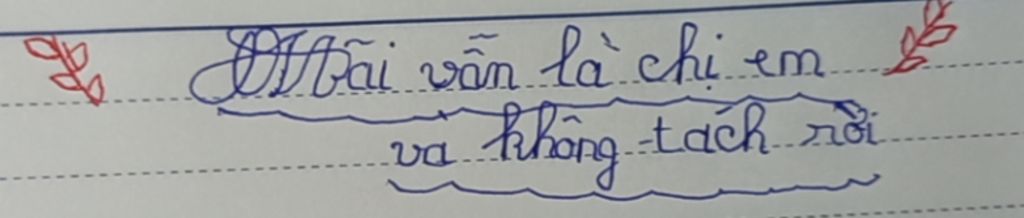 Mãi vẫn là chị em
và không tách rời